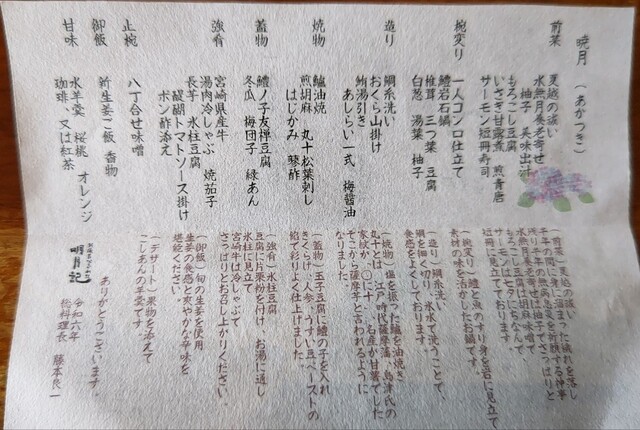 暁月（あかつき）
前菜
夏越の祓い
水無月養老寄せ
柚子 美味出汁
もろこし豆腐
いさぎ甘露煮 煎青唐
サーモン短冊寿司
椀変り
一人コンロ仕立て
鱧岩石鍋
椎茸 三つ葉 豆腐
白葱 湯葉 柚子
造り
鯛糸洗い
おくら山掛け
鮪湯引き
あしらい一式 梅醤油
焼物
鱸油焼
煎胡麻 丸十松葉刺し
はじかみ 琴酢
蓋物
鱧ノ子友禅豆腐
冬瓜 梅団子 緑あん
強肴
宮崎県産牛
湯肉冷しゃぶ 焼茄子
長芋 氷柱豆腐
醍醐トマトソース掛け
ポン酢添え
止椀
八丁合せ味噌
御飯
新生姜ご飯 香物
甘味
水羊羹 桜桃 オレンジ
珈琲、又は紅茶
（前菜）夏越の祓
半年間に身に溜まった穢れを落し
残り半年の無病息災を祈願する神事
水無月養老寄せは柚子でさっぱりと
もろこし豆腐は胡麻味噌で
サーモンは七夕にちなんで
短冊に見立てております。
（椀変り）鱧と魚のすり身を岩に見立て
素材の味を活かしたお鍋です。
（造り）鯛糸洗い
鯛を細く切り、氷水で洗うことで、
食感をよくしております。
（焼物）塩を振った鱸を油焼き
丸十とは、江戸時代薩摩藩・島津氏の
家紋が、〇に十、名産が甘薯でした
そこで薩摩芋と言われるように
なりました。
（蓋物）玉子豆腐に鱧の子を入れ
きくらげ、人参、うすい豆ペーストの
餡で彩りよく仕上げました。
（強肴）氷柱豆腐
豆腐に片栗粉を付け、お湯に通し
氷柱に見立て
宮崎牛は冷しゃぶで
さっぱりとお召し上がりください。
（御飯）旬の生姜を使用
生姜の食感と爽やかな辛味を
堪能ください。
（デザート）果物を添えて
こしあんの羊羹です。
ありがとうございます。
令和六年
総料理長 藤本良一
明月記